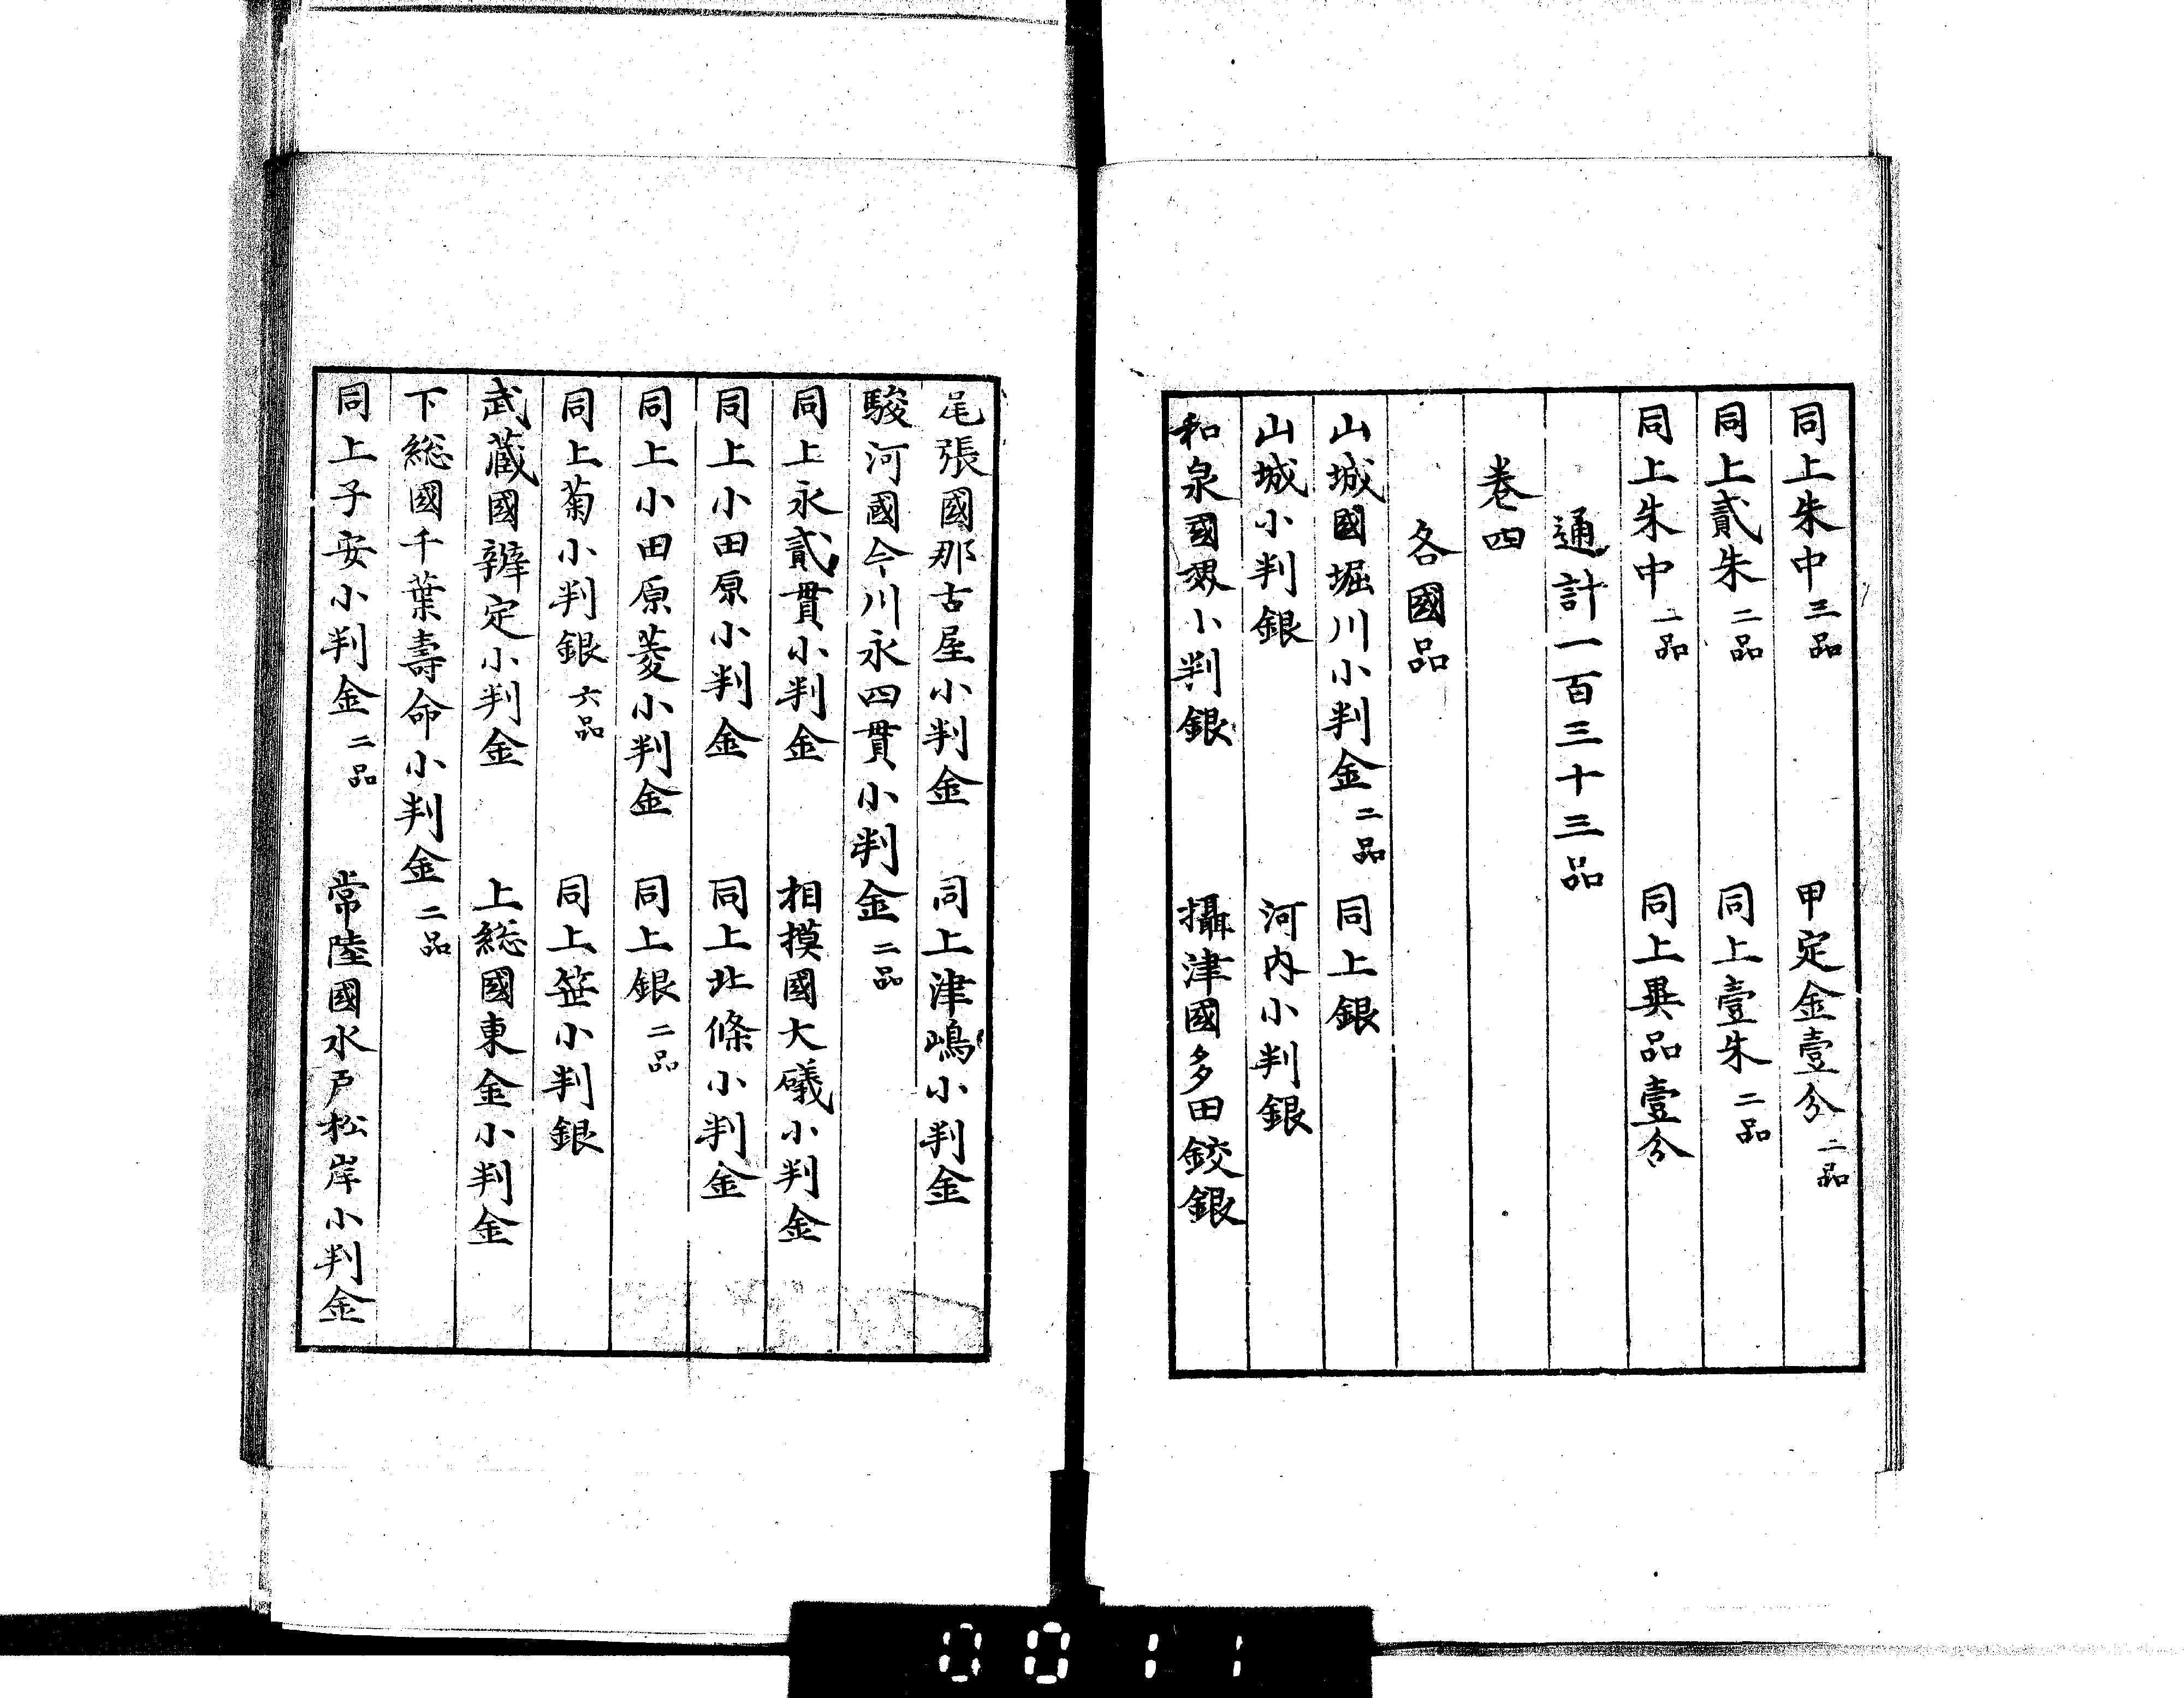 同上朱中三品　甲定金壹分二品
同上貳朱二品　同上壹朱二品
同上朱中一品　同上異品壹分
通計一百三十三品
卷四
各國品
山城國堀川小判金二品　同上銀
山城小判銀　河内小判銀
和泉國界小判銀　攝津國多田鉸銀
尾張國那古屋小判金　同上津嶋小判金
駿河國今川永四貫小判金二品
同上永貳貫小判金　相摸國大礒小判金
同上小田原小判金　同上北條小判金
同上小田原菱小判金　同上銀二品
同上菊小判銀六品　同上笹小判銀
武蔵國辨定小判金　上総國東金小判金
下総國千葉壽命小判金二品
同上子安小判金二品　常陸國水戸松岸小判金
0011